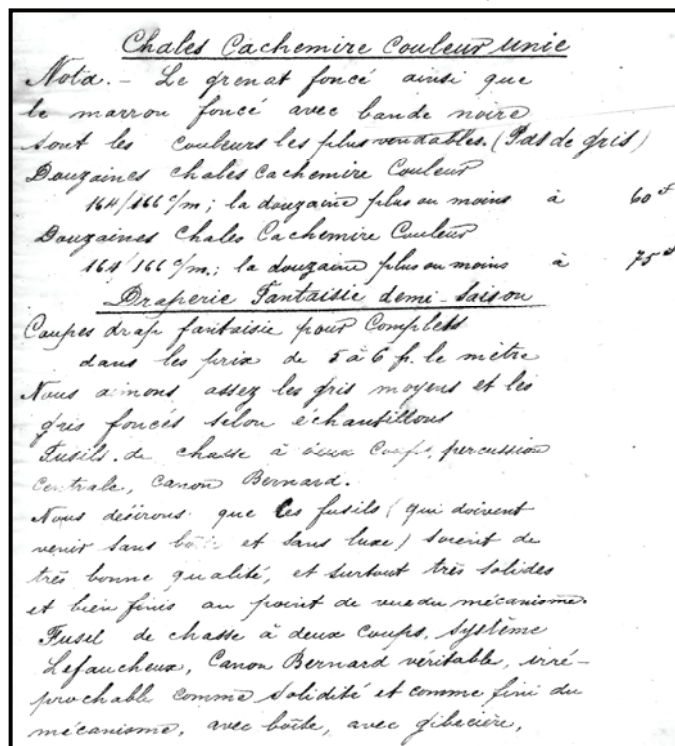 Chales Cachemire Couleur unie
Nota. - Le grenat foncé ainsi que
le marron foncé avec bande noire
sont les couleurs les plus vendables. (Pas de gris)
Douzaines chales cachemire Couleur
164/166 c/m; la douzaine plus ou moins à 60 f
Douzaines Chales Cachemire Couleur
164/166 c/m; la douzaine plus ou moins à 75 f
Draperie Fantaisie demi-saison
Coupes drap fantaisie pour Complets
dans les prix de 5 à 6 f. le mètre
Nous aimons assez les gris moyens et les
gris foncés selon échantillons
Fusils de chasse à deux Coups, percussion
Centrale, Canon Bernard.
Nous désirons que les fusils (qui doivent
venir sans boîte et sans luxe) soient de
très bonne qualité, et surtout très solides
et bien finis au point de vue du mécanisme.
Fusil de chasse à deux Coups, système
Lefaucheux, Canon Bernard véritable, irré-
prochable comme solidité et comme fini du
mécanisme, avec boîte, avec gibecière,